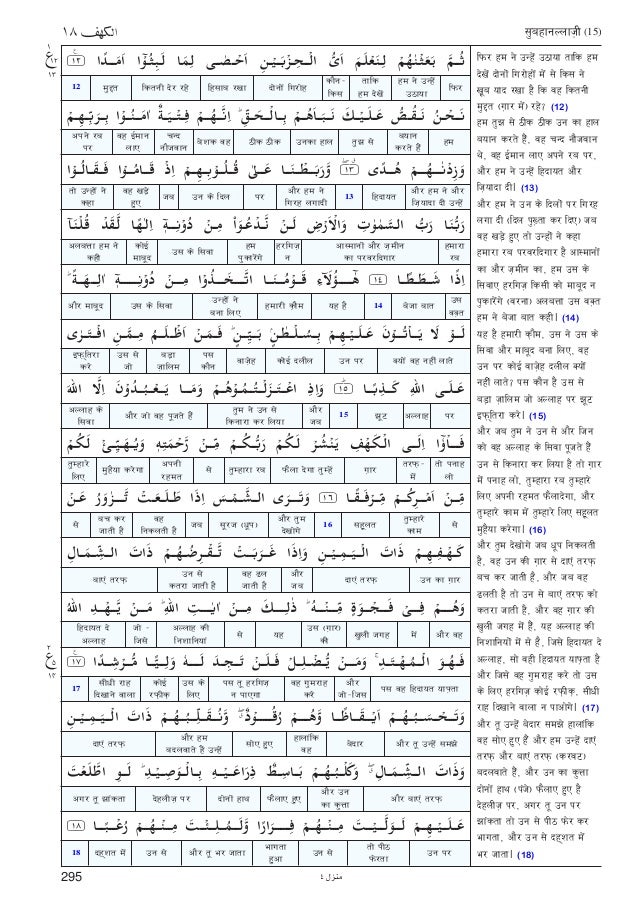 الكهف ١٨
सुबहानल्लाज़ी (15)
ثُمَّ بَعَثْنٰهُمْ لِنَعْلَمَ اَيُّ الْحِزْبَيْنِ اَحْصٰى لِمَا لَبِثُوْٓا اَمَدًا ١٢
फिर | हम ने उन्हें उठाया | ताकि हम देखें | कौन-किस | दोनों गिरोह | हिसाब रखा | कितनी देर रहे | मुद्दत | 12
نَحْنُ نَقُصُّ عَلَيْكَ نَبَاَهُمْ بِالْحَقِّ ؕ اِنَّهُمْ فِتْيَةٌ اٰمَنُوْا بِرَبِّهِمْ
हम | बयान करते हैं | तुझ से | उनका हाल | ठीक ठीक | बेशक वह | चन्द नौजवान | वह ईमान लाए | अपने रब पर
وَزِدْنٰهُمْ هُدًى ١٣ وَّرَبَطْنَا عَلٰى قُلُوْبِهِمْ اِذْ قَامُوْا فَقَالُوْا
और हम ने और ज़ियादा दी उन्हें | हिदायत | 13 | और हम ने गिरह लगादी | पर | उन के दिल | जब | वह खड़े हुए | तो उन्हों ने कहा
رَبُّنَا رَبُّ السَّمٰوٰتِ وَالْاَرْضِ لَنْ نَّدْعُوَا۟ مِنْ دُوْنِهٖٓ اِلٰهًا لَّقَدْ قُلْنَآ
हमारा रब | आस्मानों और ज़मीन का परवरदिगार | हरगिज़ न | हम पुकारेंगे | उस के सिवा | कोई माबूद | अलबत्ता हम ने कही
اِذًا شَطَطًا ١٤ هٰٓؤُلَآءِ قَوْمُنَا اتَّخَذُوْا مِنْ دُوْنِهٖٓ اٰلِهَةً ؕ
उस वक़्त | बेजा बात | 14 | यह है | हमारी क़ौम | उन्हों ने बना लिए | उस के सिवा | और माबूद
لَوْ لَا يَاْتُوْنَ عَلَيْهِمْ بِسُلْطٰنٍۢ بَيِّنٍ ؕ فَمَنْ اَظْلَمُ مِمَّنِ افْتَرٰى
क्यों वह नहीं लाते | उन पर | कोई दलील | वाज़ेह | पस कौन | बड़ा ज़ालिम | उस से जो | इफ़्तिरा करे
عَلَى اللّٰهِ كَذِبًا ١٥ وَاِذِ اعْتَزَلْتُمُوْهُمْ وَمَا يَعْبُدُوْنَ اِلَّا اللّٰهَ
पर | अल्लाह | झूट | 15 | और जब | तुम ने उन से किनारा कर लिया | और जो वह पूजते हैं | अल्लाह के सिवा
فَاْوٗٓا اِلَى الْكَهْفِ يَنْشُرْ لَكُمْ رَبُّكُمْ مِّنْ رَّحْمَتِهٖ وَيُهَيِّئْ لَكُمْ
तो पनाह लो | तरफ़-में | ग़ार | फैला देगा तुम्हें | तुम्हारा रब | से | अपनी रहमत | मुहैया करेगा | तुम्हारे लिए
مِّنْ اَمْرِكُمْ مِّرْفَقًا ١٦ وَتَرَى الشَّمْسَ اِذَا طَلَعَتْ تَّزٰوَرُ عَنْ
से | तुम्हारे काम | सहूलत | 16 | और तुम देखोगे | सूरज (धूप) | जब | वह निकलती है | बच कर जाती है | से
كَهْفِهِمْ ذَاتَ الْيَمِيْنِ وَاِذَا غَرَبَتْ تَّقْرِضُهُمْ ذَاتَ الشِّمَالِ
उन का ग़ार | दाएं तरफ़ | और जब | वह ढल जाती है | उन से कतरा जाती है | बाएं तरफ़
وَهُمْ فِيْ فَجْوَةٍ مِّنْهُ ؕ ذٰلِكَ مِنْ اٰيٰتِ اللّٰهِ ؕ مَنْ يَّهْدِ اللّٰهُ
और वह | में | खुली जगह | उस (ग़ार) की | यह | से | अल्लाह की निशानियां | जो - जिसे | हिदायत दे अल्लाह
فَهُوَ الْمُهْتَدِ ۚ وَمَنْ يُّضْلِلْ فَلَنْ تَجِدَ لَهٗ وَلِيًّا مُّرْشِدًا ١٧
पस वह हिदायत याफ़्ता | और जो-जिस | वह गुमराह करे | पस तू हरगिज़ न पाएगा | उस के लिए | कोई रफ़ीक़ | सीधी राह दिखाने वाला | 17
وَتَحْسَبُهُمْ اَيْقَاظًا وَّهُمْ رُقُوْدٌ ۖ وَّنُقَلِّبُهُمْ ذَاتَ الْيَمِيْنِ
और तू उन्हें समझे | बेदार | हालांकि वह | सोए हुए | और हम बदलवाते हैं उन्हें | दाएं तरफ़
وَذَاتَ الشِّمَالِ ۖ وَكَلْبُهُمْ بَاسِطٌ ذِرَاعَيْهِ بِالْوَصِيْدِ ؕ لَوِ اطَّلَعْتَ
और बाएं तरफ़ | और उन का कुत्ता | फैलाए हुए | दोनों हाथ | देहलीज़ पर | अगर तू झांकता
عَلَيْهِمْ لَوَلَّيْتَ مِنْهُمْ فِرَارًا وَّلَمُلِئْتَ مِنْهُمْ رُعْبًا ١٨
उन पर | तो पीठ फेरता | उन से | भागता हुआ | और तू भर जाता | उन से | दहशत में | 18
फिर हम ने उन्हें उठाया ताकि हम
देखें दोनों गिरोहों में से किस ने
खूब याद रखा है कि वह कितनी
मुद्दत (ग़ार में) रहे? (12)
हम तुझ से ठीक ठीक उन का हाल
बयान करते हैं, वह चन्द नौजवान
थे, वह ईमान लाए अपने रब पर,
और हम ने उन्हें हिदायत और
ज़ियादा दी। (13)
और हम ने उन के दिलों पर गिरह
लगा दी (दिल पुख़्ता कर दिए) जब
वह खड़े हुए तो उन्हों ने कहा
हमारा रब परवरदिगार है आस्मानों
का और ज़मीन का, हम उस के
सिवाए हरगिज़ किसी को माबूद न
पुकारेंगे (वरना) अलबत्ता उस वक़्त
हम ने बेजा बात कही। (14)
यह है हमारी क़ौम, उस ने उस के
सिवा और माबूद बना लिए, वह
उन पर कोई वाज़ेह दलील क्यों
नहीं लाते? पस कौन है उस से
बड़ा ज़ालिम जो अल्लाह पर झूट
इफ़्तिरा करे। (15)
और जब तुम ने उन से और जिन
को वह अल्लाह के सिवा पूजते हैं
उन से किनारा कर लिया है तो ग़ार
में पनाह लो, तुम्हारा रब तुम्हारे
लिए अपनी रहमत फैलादेगा, और
तुम्हारे काम में तुम्हारे लिए सहूलत
मुहैया करेगा। (16)
और तुम देखोगे जब धूप निकलती
है, वह उन की ग़ार से दाएं तरफ़
बच कर जाती है, और जब वह
ढलती है तो उन से बाएं तरफ़ को
कतरा जाती है, और वह ग़ार की
खुली जगह में हैं, यह अल्लाह की
निशानियों में से है, जिसे हिदायत दे
अल्लाह, सो वही हिदायत याफ़्ता है
और जिसे वह गुमराह करे तो उस
के लिए हरगिज़ कोई रफ़ीक़, सीधी
राह दिखाने वाला न पाओगे। (17)
और तू उन्हें बेदार समझे हालांकि
वह सोए हुए हैं और हम उन्हें दाएं
तरफ़ और बाएं तरफ़ (करवट)
बदलवाते हैं, और उन का कुत्ता
दोनों हाथ (पंजे) फैलाए हुए है
देहलीज़ पर, अगर तू उन पर
झांकता तो उन से पीठ फेर कर
भागता, और उन से दहशत में
भर जाता। (18)
295
منزل ٤